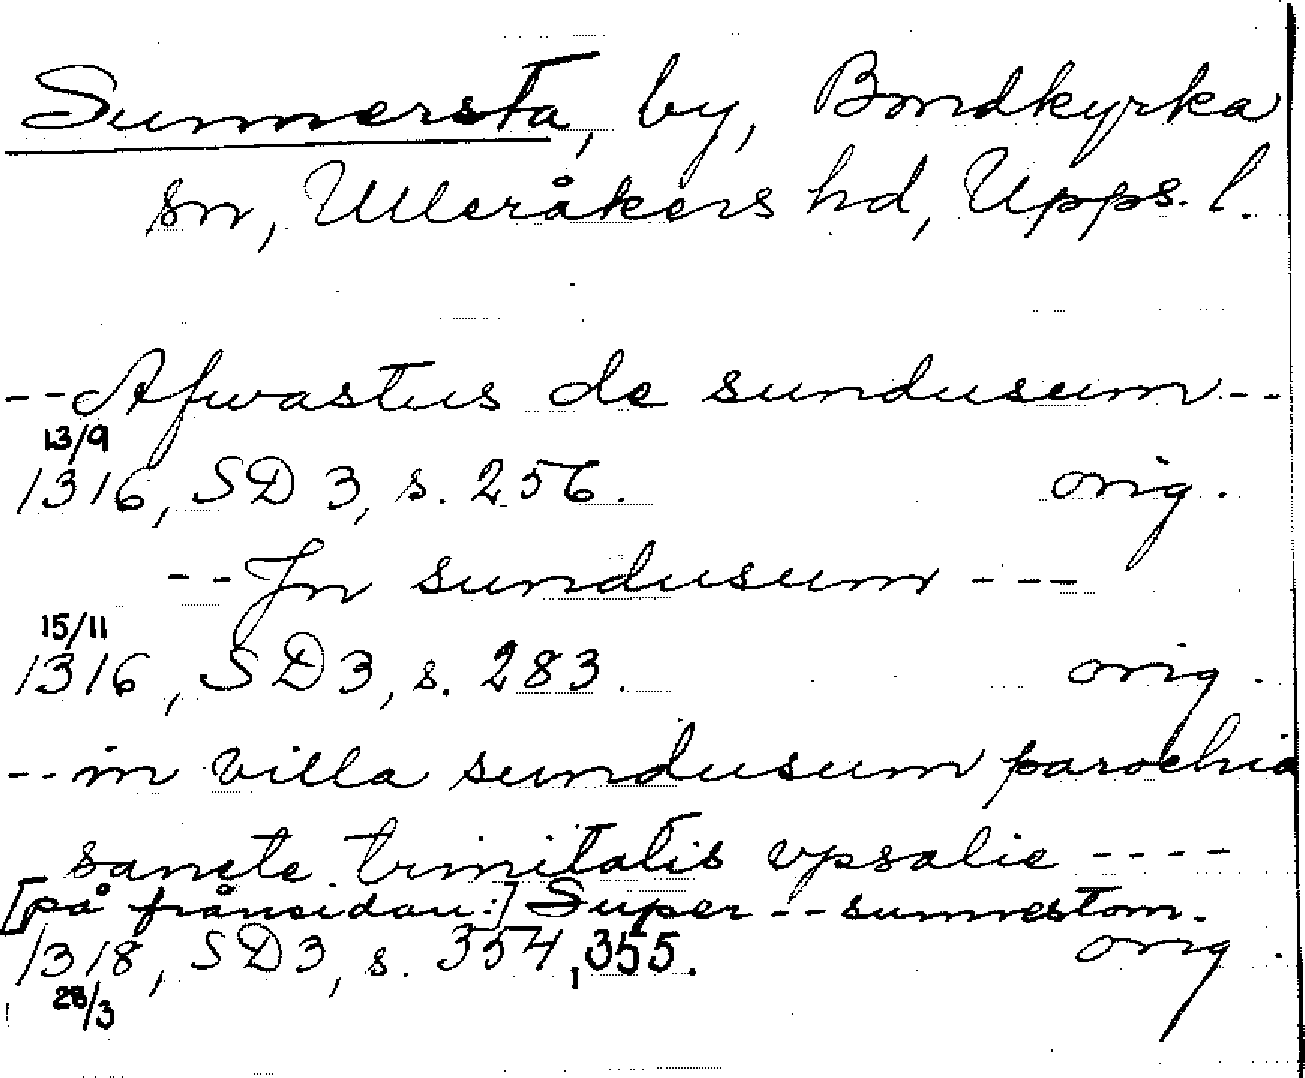 Sunnersta, by, Bondkyrka
sn, Ulleråkers hd, Upps. l.
-- Afwastus de sundusum --
13/9
1316, SD 3, s. 256. orig.
-- Jn sundusum ---
15/11
1316, SD 3, s. 283. orig.
-- in villa sundusum parochia
sancte trinitatis vpsalie ----
[på frånsidan:] Super -- sunnestom.
1318, SD 3, s. 354, 355. orig.
28/3